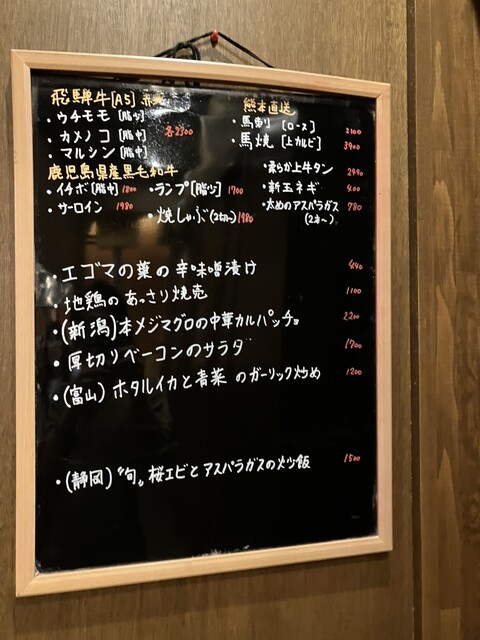 飛騨牛[A5] 赤身
・ウチモモ[脂少]
・カメノコ[脂中] 各2300
・マルシン[脂中]
鹿児島県産黒毛和牛
・イチボ[脂中] 1800 ・ランプ[脂少] 1700
・サーロイン 1980 ・焼しゃぶ(2切〜) 1980
熊本直送
・馬刺[ロース] 2100
・馬焼[上カルビ] 3900
・柔らか上牛タン 2490
・新玉ネギ 400
・太めのアスパラガス 780
(2本〜)
・エゴマの葉の辛味噌漬け 440
・地鶏のあっさり焼売 1100
・(新潟)本メジマグロの中華カルパッチョ 2200
・厚切りベーコンのサラダ 1700
・(富山)ホタルイカと青菜のガーリック炒め 1200
・(静岡)〝旬〟桜エビとアスパラガスの炒飯 1500